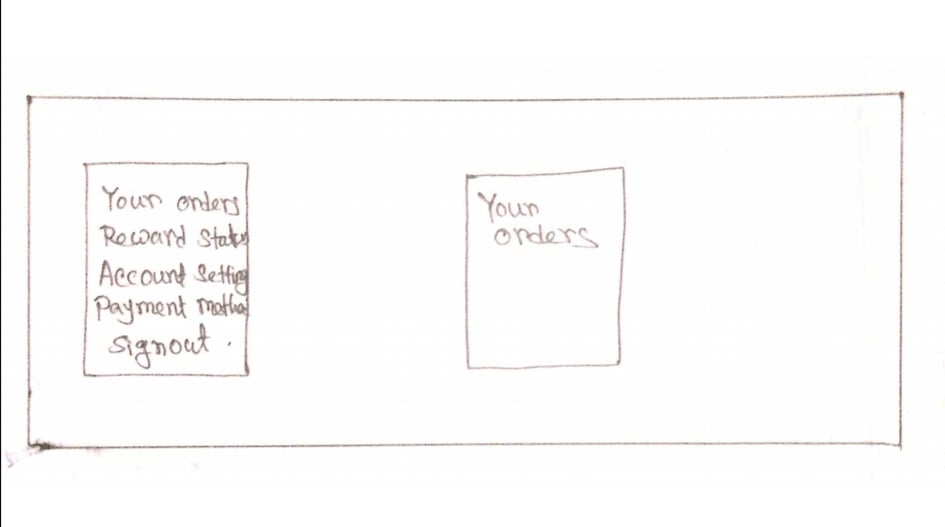 Your orders
Reward Status
Account Setting
Payment method
signout .
Your
orders